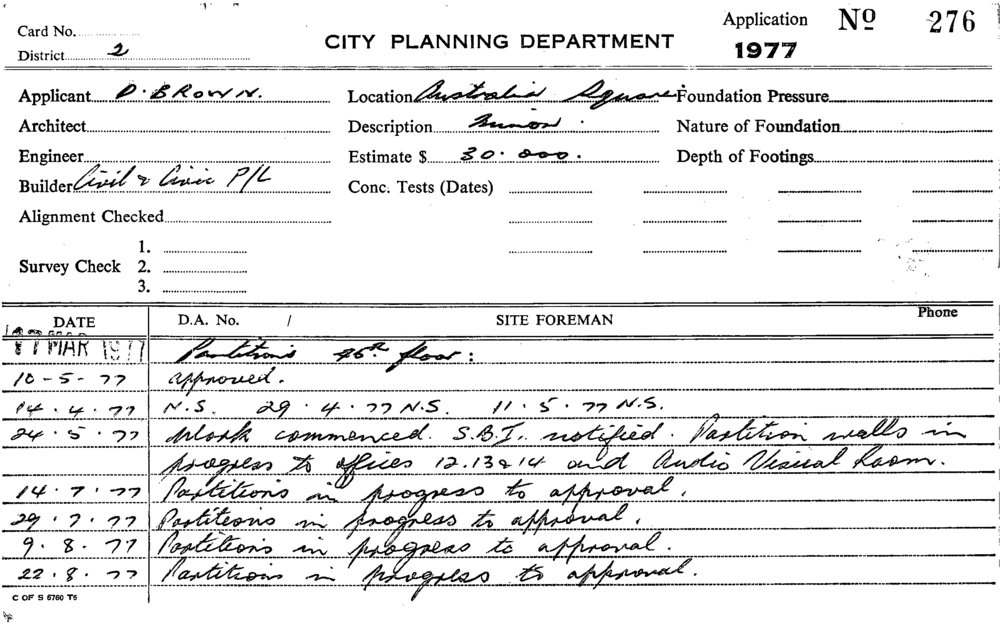 Card No.
District 2
CITY PLANNING DEPARTMENT
Application Nº 276
1977
Applicant D. BROWN.
Location Australia Square
Foundation Pressure
Architect
Description Minor.
Nature of Foundation
Engineer
Estimate $ 30.000.
Depth of Footings
Builder Civil & Civic P/L
Conc. Tests (Dates)
Alignment Checked
Survey Check
1.
2.
3.
DATE D.A. No. / SITE FOREMAN Phone
11 MAR 1977 Partitions 46th floor:
10-5-77 approved.
14.4.77 N.S. 29.4.77 N.S. 11.5.77 N.S.
24.5.77 Work commenced. S.B.I. notified. Partition walls in
progress to offices 12.13 & 14 and Audio Visual Room.
14.7.77 Partitions in progress to approval.
29.7.77 Partitions in progress to approval.
9.8.77 Partitions in progress to approval.
22.8.77 Partitions in progress to approval.
C OF S 6760 T5